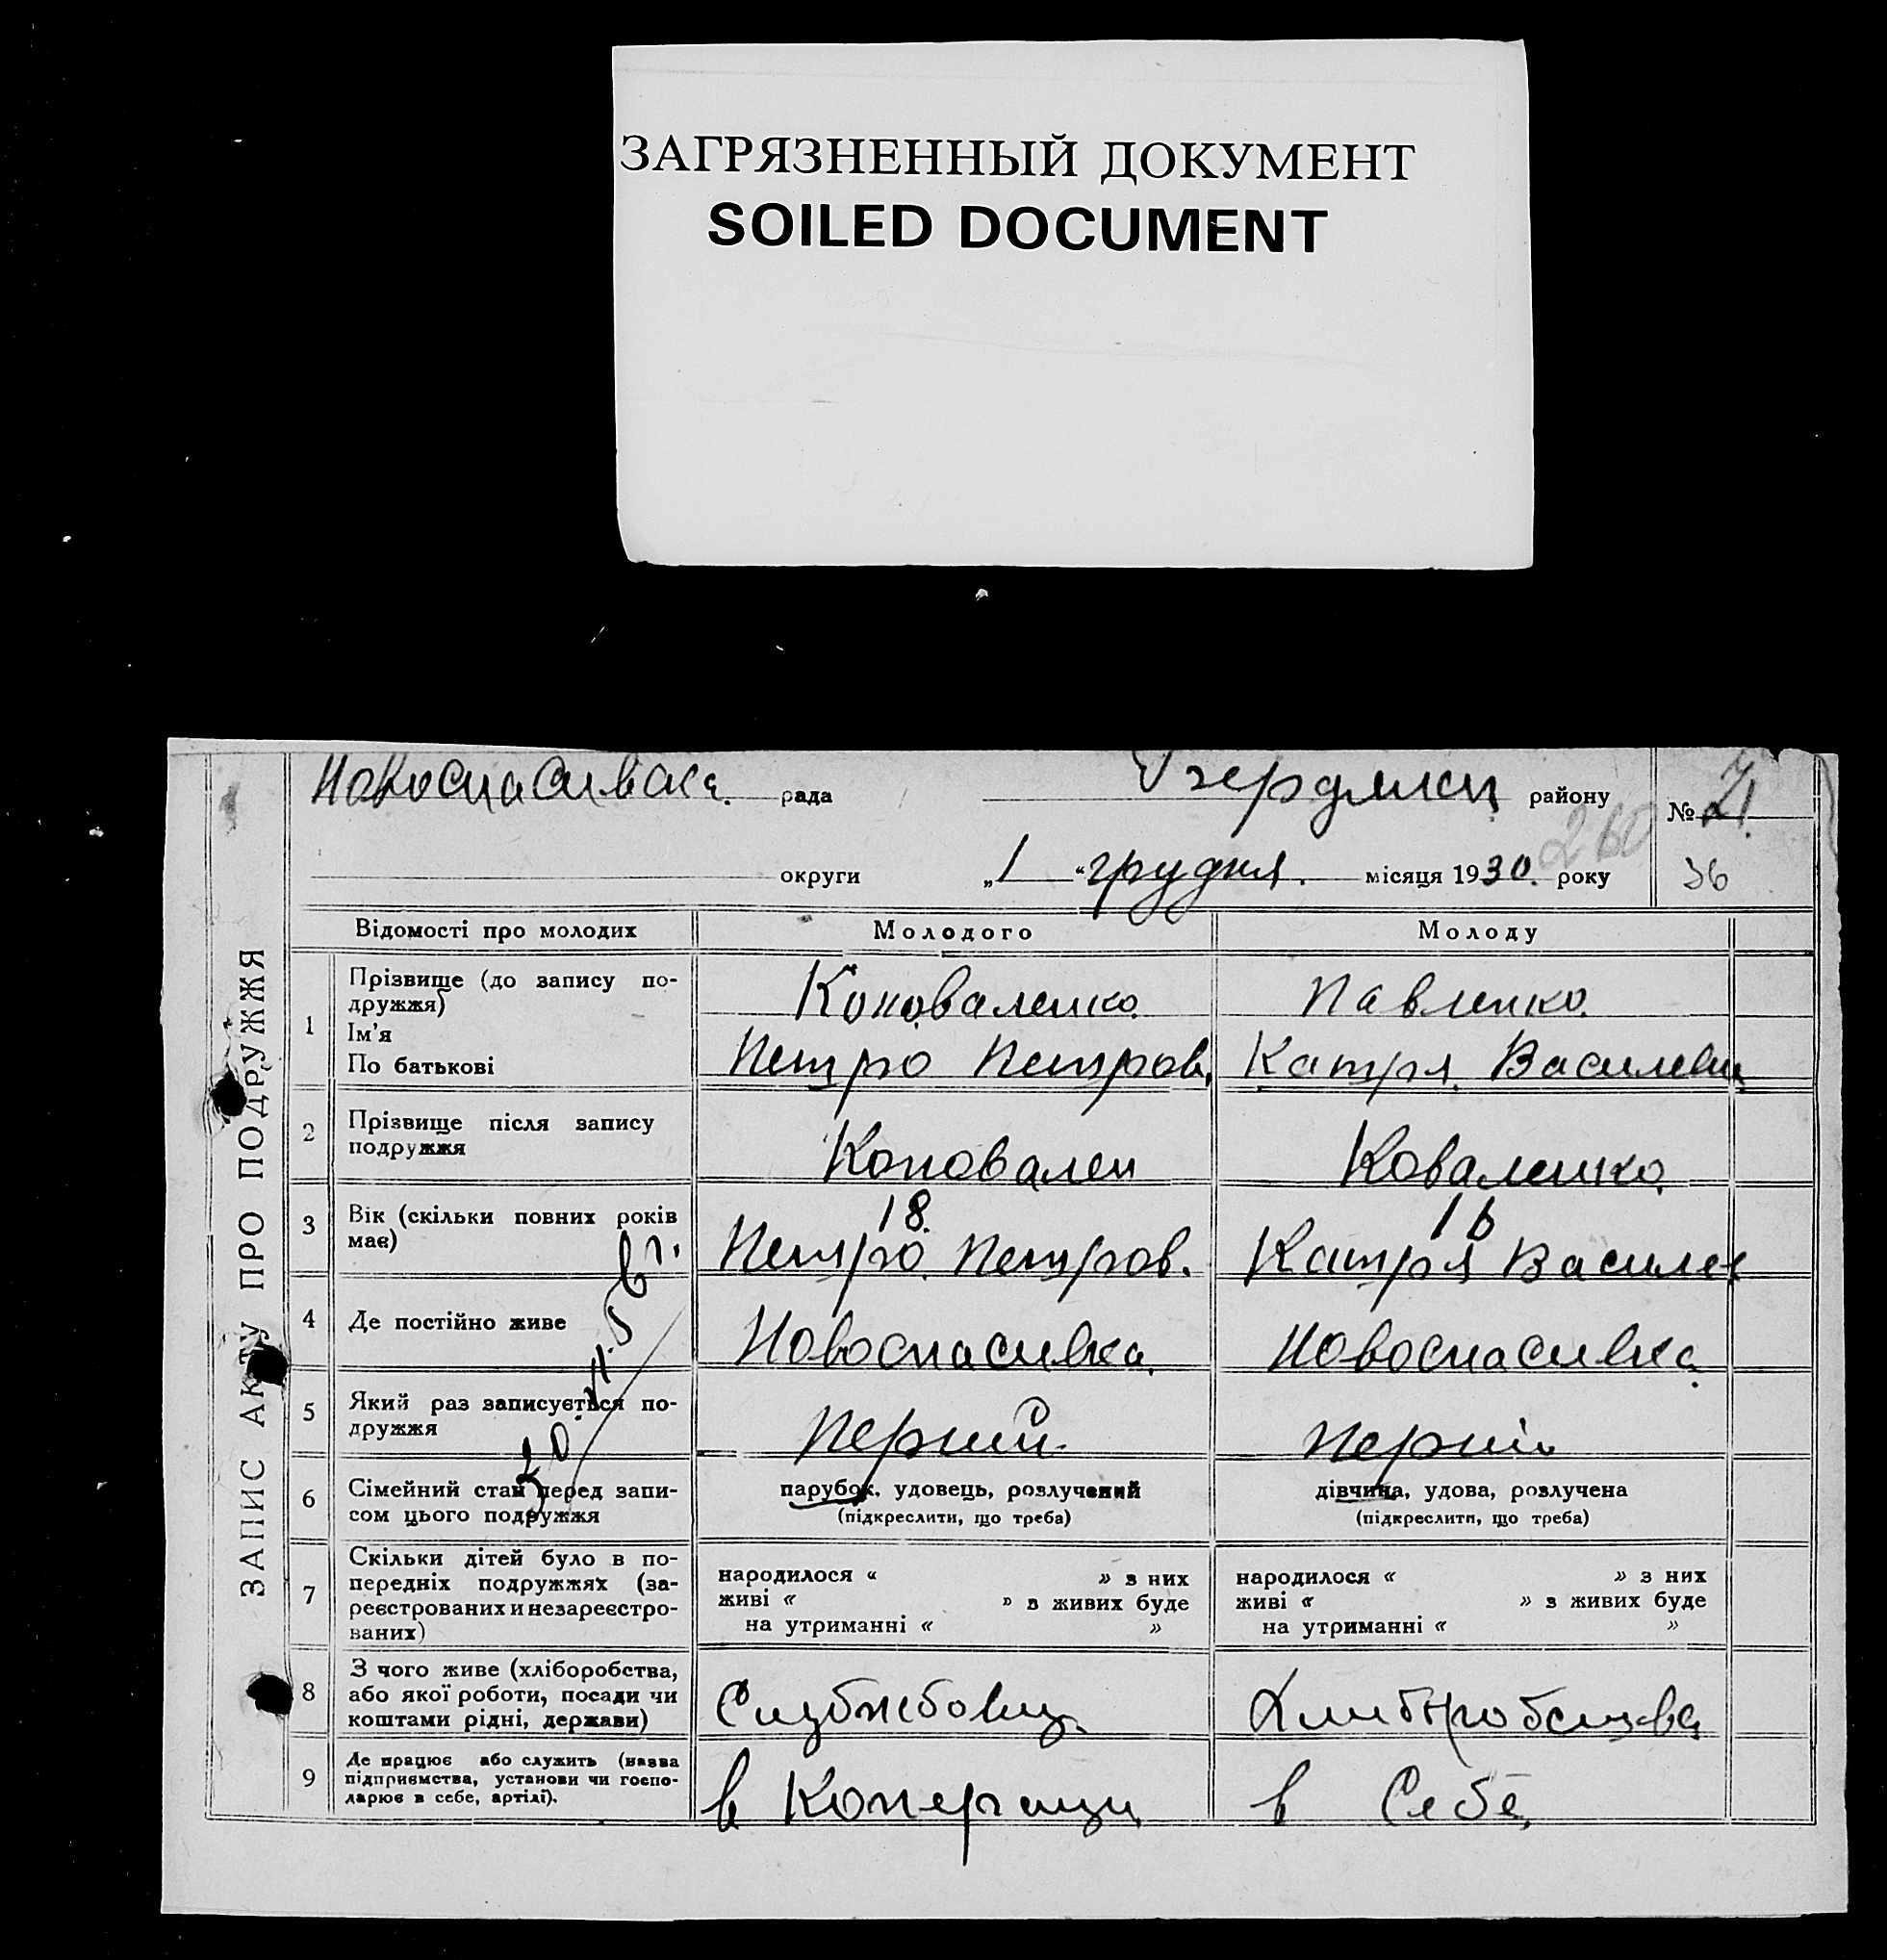 ЗАГРЯЗНЕННЫЙ ДОКУМЕНТ
SOILED DOCUMENT
Новоспасивска. рада район у № 21.
округи „1“ грудня. місяця 1930. року 36
260
ЗАПИС АКТУ ПРО ПОДРУЖЖЯ
Відомості про молодих Молодого Молоду
1 Прізвище (до запису по-
дружжя) Коноваленко Павленко
Ім'я
По батькові Петро Петров. Катря Василевн
2 Прізвище після запису
подружжя Коновален Коваленко
3 Вік (скільки повних років
має) 18. 16
Петро Петров. Катря Василев
4 Де постійно живе Новоспасивка. Новоспасивка
5 Який раз записується по-
дружжя Перший Перший
6 Сімейний стан перед запи-
сом цього подружжя
парубок, удовець, розлучений дівчина, удова, розлучена
(підкреслити, що треба) (підкреслити, що треба)
7 Скільки дітей було в по-
передніх подружжях (за-
реєстрованих и незареєстро-
ваних)
народилося “ » з них народилося “ » з них
живі “ » з живих буде живі “ » з живих буде
на утриманні “ » на утриманні “ »
8 З чого живе (хліборобства,
або якої роботи, посади чи
коштами рідні, держави)
9 Де працює або служить (назва
підприємства, установи чи госпо-
дарює в себе, артілі).
в Коперации в Себе